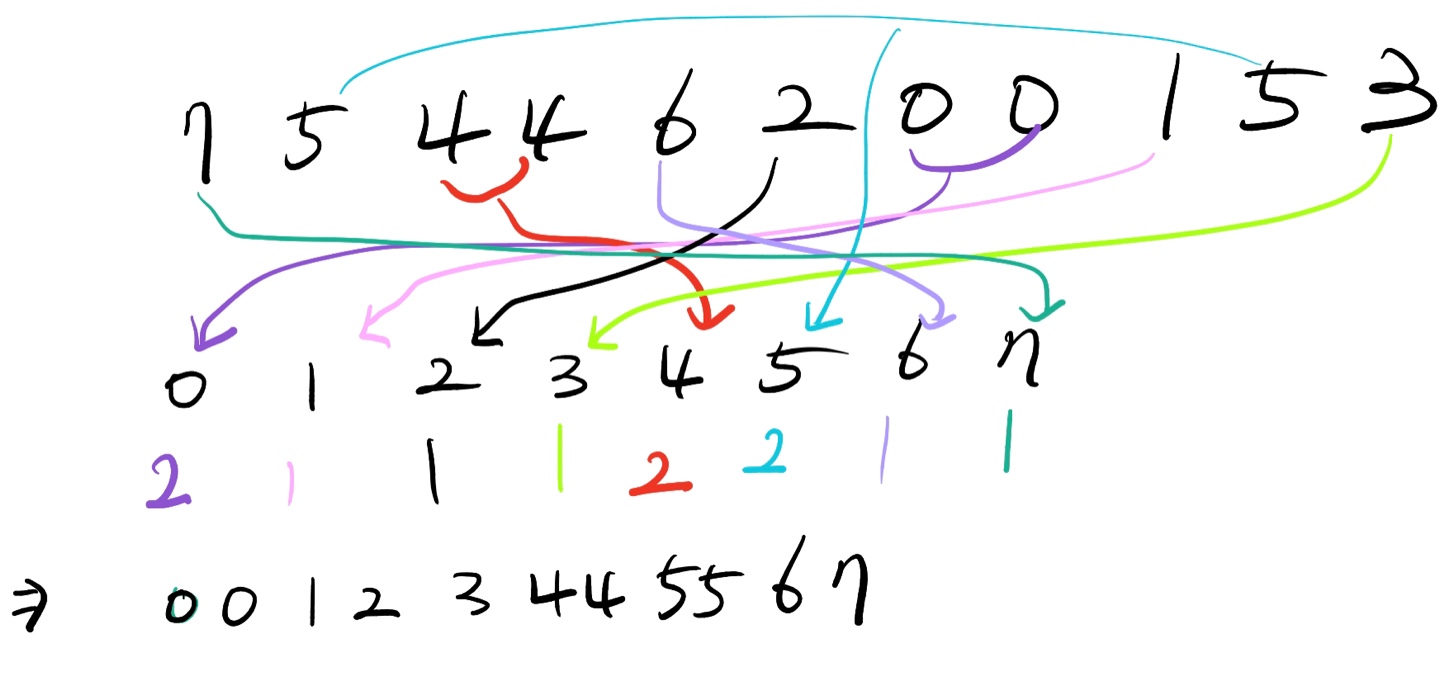 7 5 4 4 6 2 0 0 1 5 3
0 1 2 3 4 5 6 7
2 1 1 1 2 2 1 1
⇒ 0 0 1 2 3 4 4 5 5 6 7